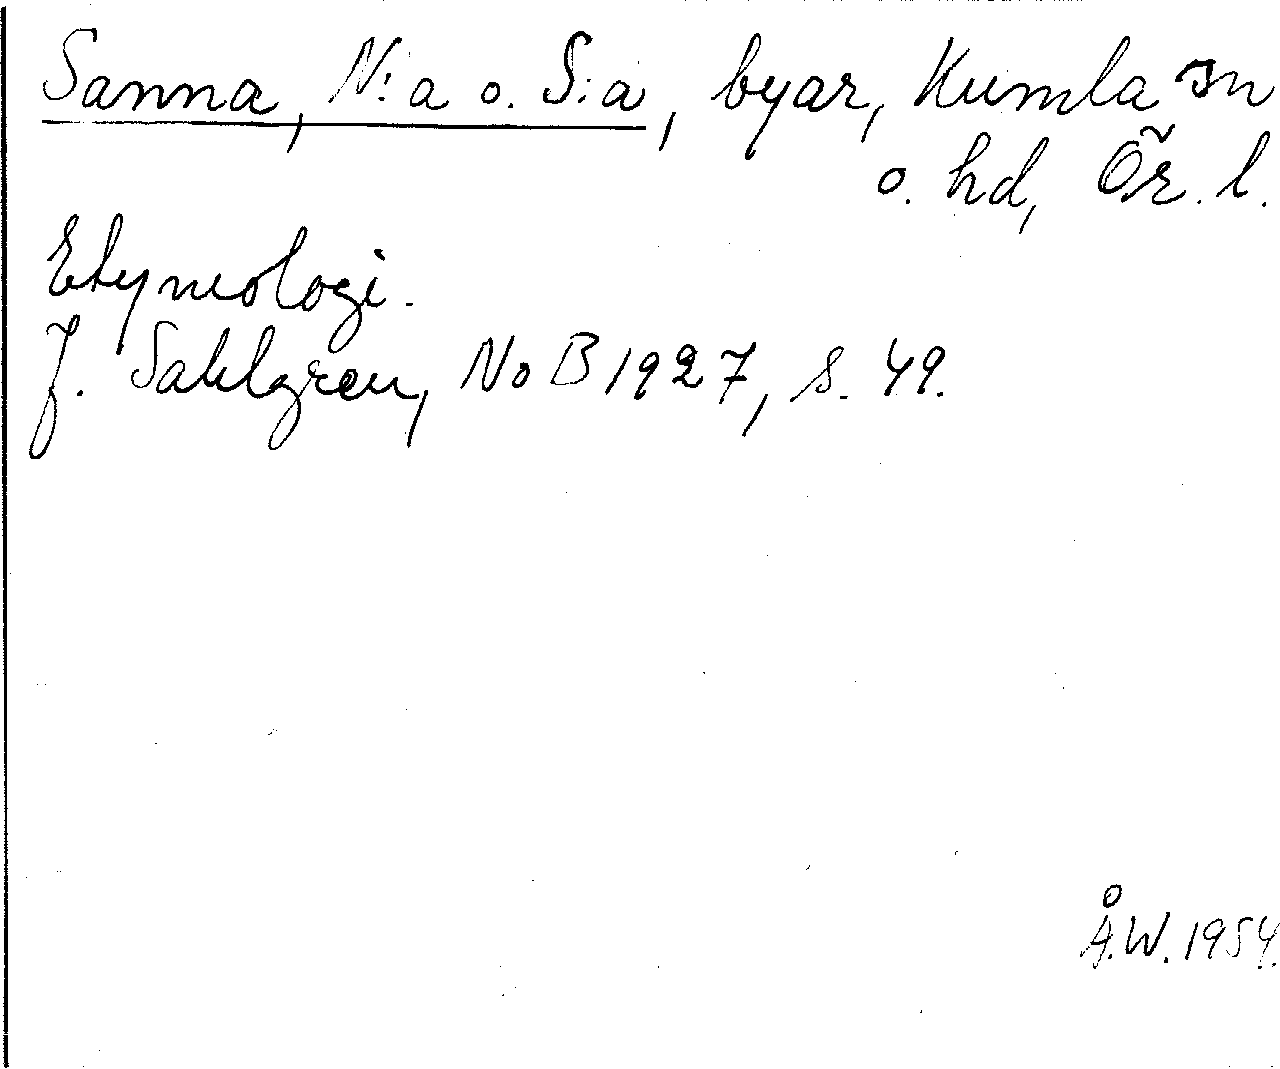 Sanna, N:a o. S:a, byar, Kumla sn
o. hd, Ör. l.
Etymologi.
J. Sahlgren, NoB 1927, s. 49.
Å.W. 1954.